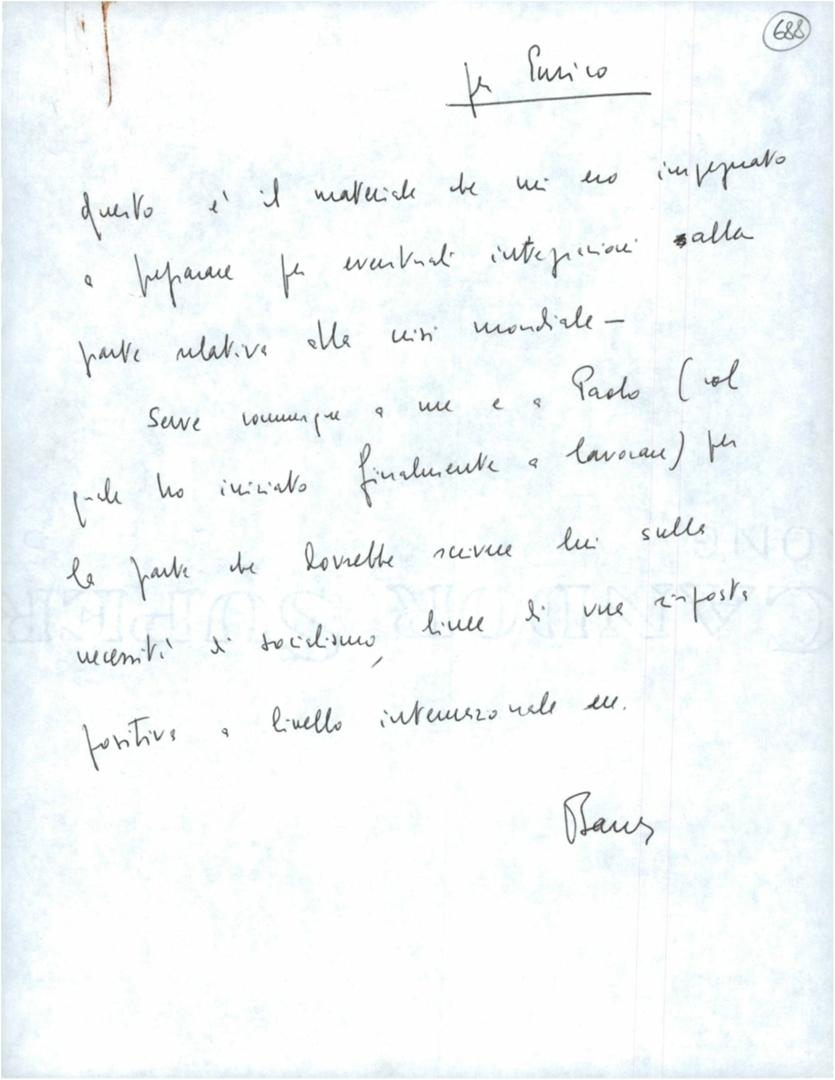 688
per Enrico
questo è il materiale che mi ero impegnato
a preparare per eventuali integrazioni alla
parte relativa alla crisi mondiale —
Serve comunque a me e a Paolo (col
quale ho iniziato finalmente a lavorare) per
la parte che dovrebbe scrivere lui sulla
necessità di socialismo, linee di una risposta
positiva a livello internazionale ecc.